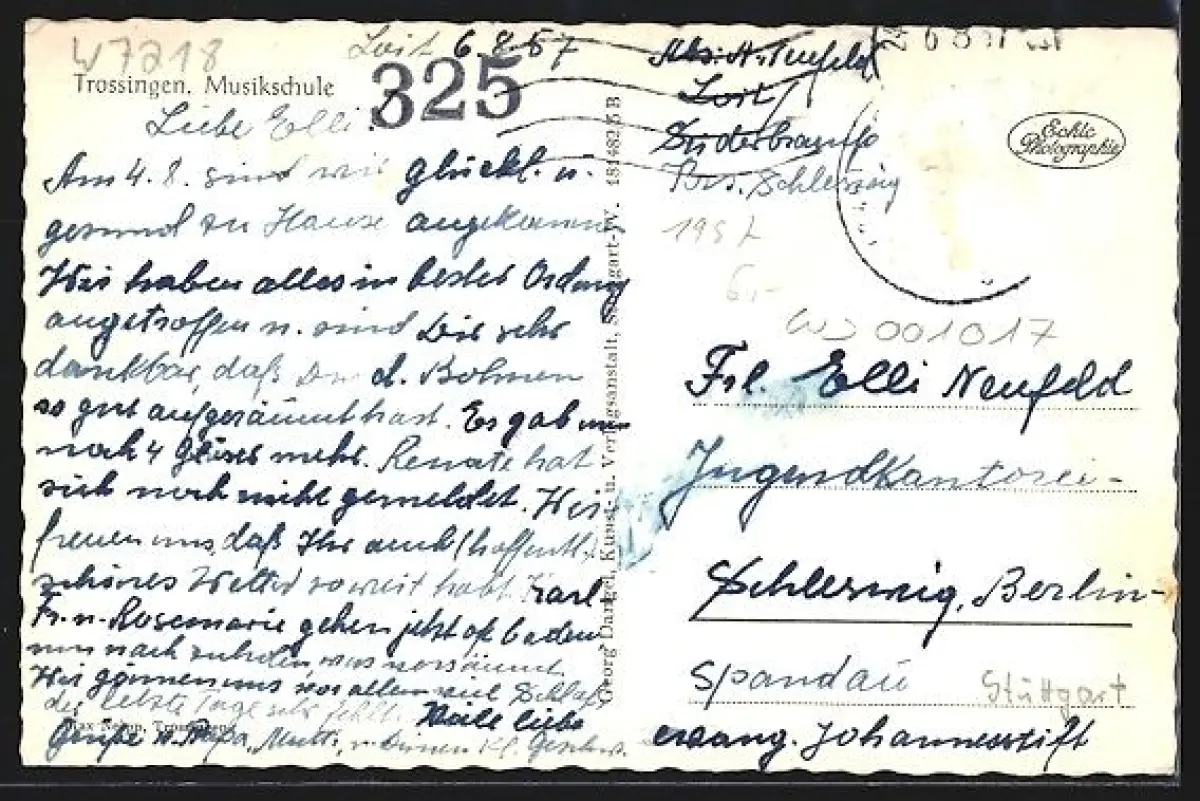 47218
Loit 6.8.57
Trossingen, Musikschule
325
Liebe Elli!
Am 4.8. sind wir glückl. u.
gesund zu Hause angekommen
Wir haben alles in bester Ordnung
angetroffen u. sind Dir sehr
dankbar, daß Du d. Bohnen
so gut aufgeräumt hast. Es gab nun
noch 4 Gläser mehr. Renate hat
sich noch nicht gemeldet. Wir
freuen uns, daß Ihr auch (hoffentl.)
schönes Wetter soweit habt. Karl
Fr. u. Rosemarie gehen jetzt oft baden
um nachzuholen was versäumt.
Wir gönnen uns vor allem viel Schlaf,
der letzte Tage sehr fehlte. Viele liebe
Grüße v. Papa, Mutti, u. Deinen kl. Geschw.
Trossingen
Georg Dangel, Kunst- u. Verlagsanstalt, Stuttgart-W.
Abs. A. Neufeld
Loit
Süderbrarup
Krs. Schleswig
1957
6,-
001017
Echte
Photographie
Frl. Elli Neufeld
Jugendkantorei-
Schleswig, Berlin-
Spandau
Stuttgart
evang. Johannesstift